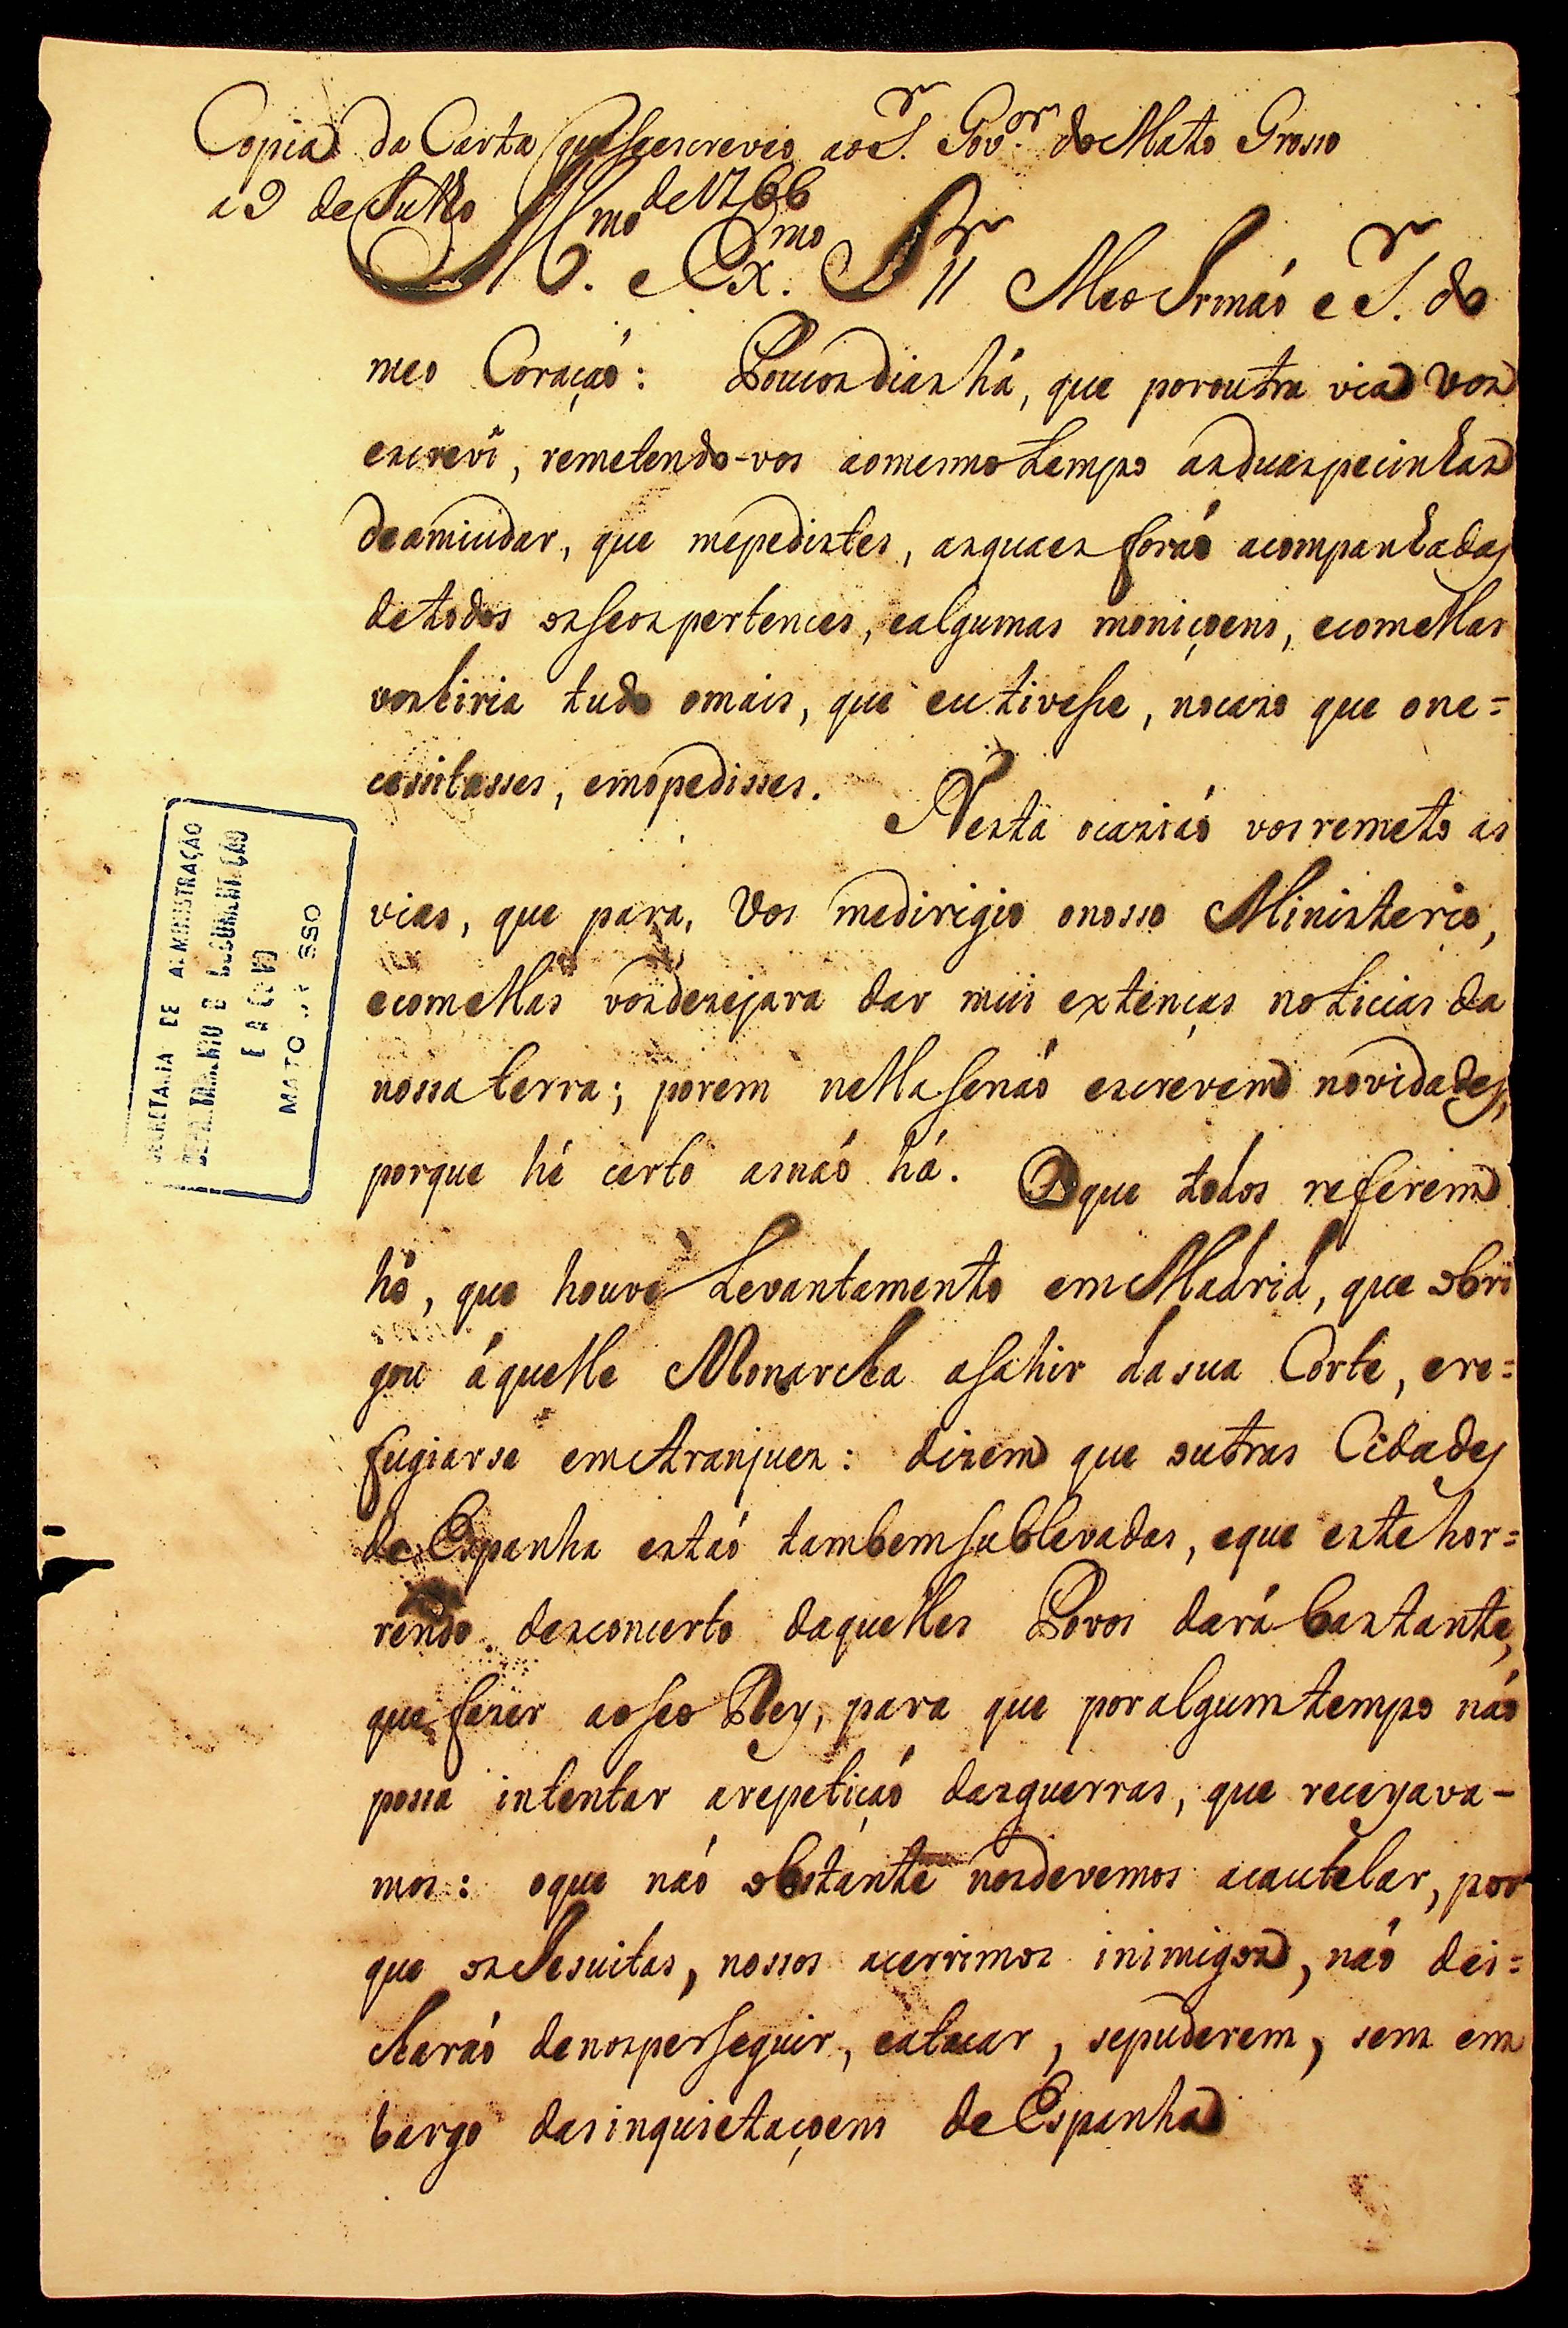 Copia da Carta que se escreveo ao S.ʳ Gov.ᵒʳ do Mato Grosso
a 9 de Julho de 1766
Ill.ᵐᵒ e Ex.ᵐᵒ S.ʳ Meo Irmaó e S.ʳ do
meo Coraçaó: Poucos dias há, que por outra via vos
escrevi, remetendo-vos ao mesmo tempo as duas pecinhas
de amiudar, que me pedistes, as quaes foraó acompanhadas
de todos os seos pertences, e algumas moniçoens, e com ellas
vos hiria tudo o mais, que eu tivesse, no caso que o ne=
cessitasses, e mo pedisses.
Nesta ocasiaó vos remeto as
vias, que para, Vos me dirigio o nosso Ministerio,
e com ellas vos desejara dar mui extenças noticias da
nossa terra; porem nella se naó escrevem novidades,
porque hé certo as naó há. O que todos referem
hé, que houve Levantamento em Madrid, que obri
gou áquelle Monarcha a sahir da sua Corte, e re=
fugiarse em Aranjuez: dizem que outras Cidades
de Espanha estaó tambem sublevadas, e que este hor=
rendo desconcerto daquelles Povos dará bastante,
que fazer ao seo Rey, para que por algum tempo naó
possa intentar a repetiçaó das guerras, que receyava-
mos: o que naó obstante nos devemos acautelar, por
que os Jesuitas, nossos acerrimos inimigos, naó dei=
charaó de nos perseguir, e atacar, se puderem, sem em
bargo das inquietaçoens de Espanha
SECRETARIA DE ADMINISTRAÇÃO
DEPARTAMENTO D DOCUMENTAÇÃO
E ARQUIVO
MATO GROSSO